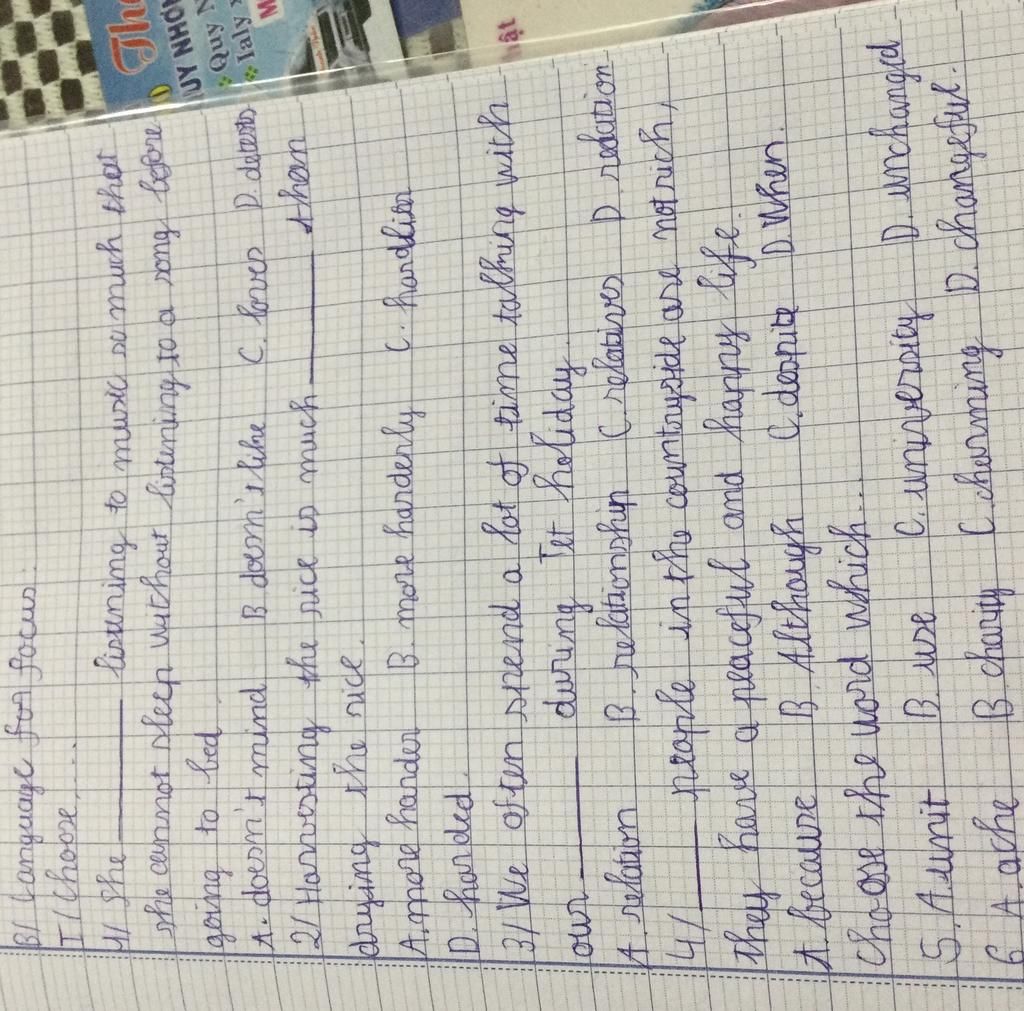 B/ Language for focus:
I/ Choose.....
1/ She ______ listening to music so much that
she cannot sleep without listening to a song before
going to bed.
A. doesn't mind B. doesn't like C. loves D. detests
2/ Harvesting the rice is much ______ than
drying the rice.
A. more harder B. more hardenly C. hardlier
D. harded.
3/ We often spend a lot of time talking with
our ______ during Tet holiday.
A. relation B. relationship C. relatives D. relation
4/ ______ people in the countryside are not rich,
they have a peaceful and happy life.
A. because B. Although C. despite D When.
Choose the word which...
5. A unit B. use C. university D. unchanged
6 A. ache B. charity C. charming D. changeful.
Quy N
Italy
hật